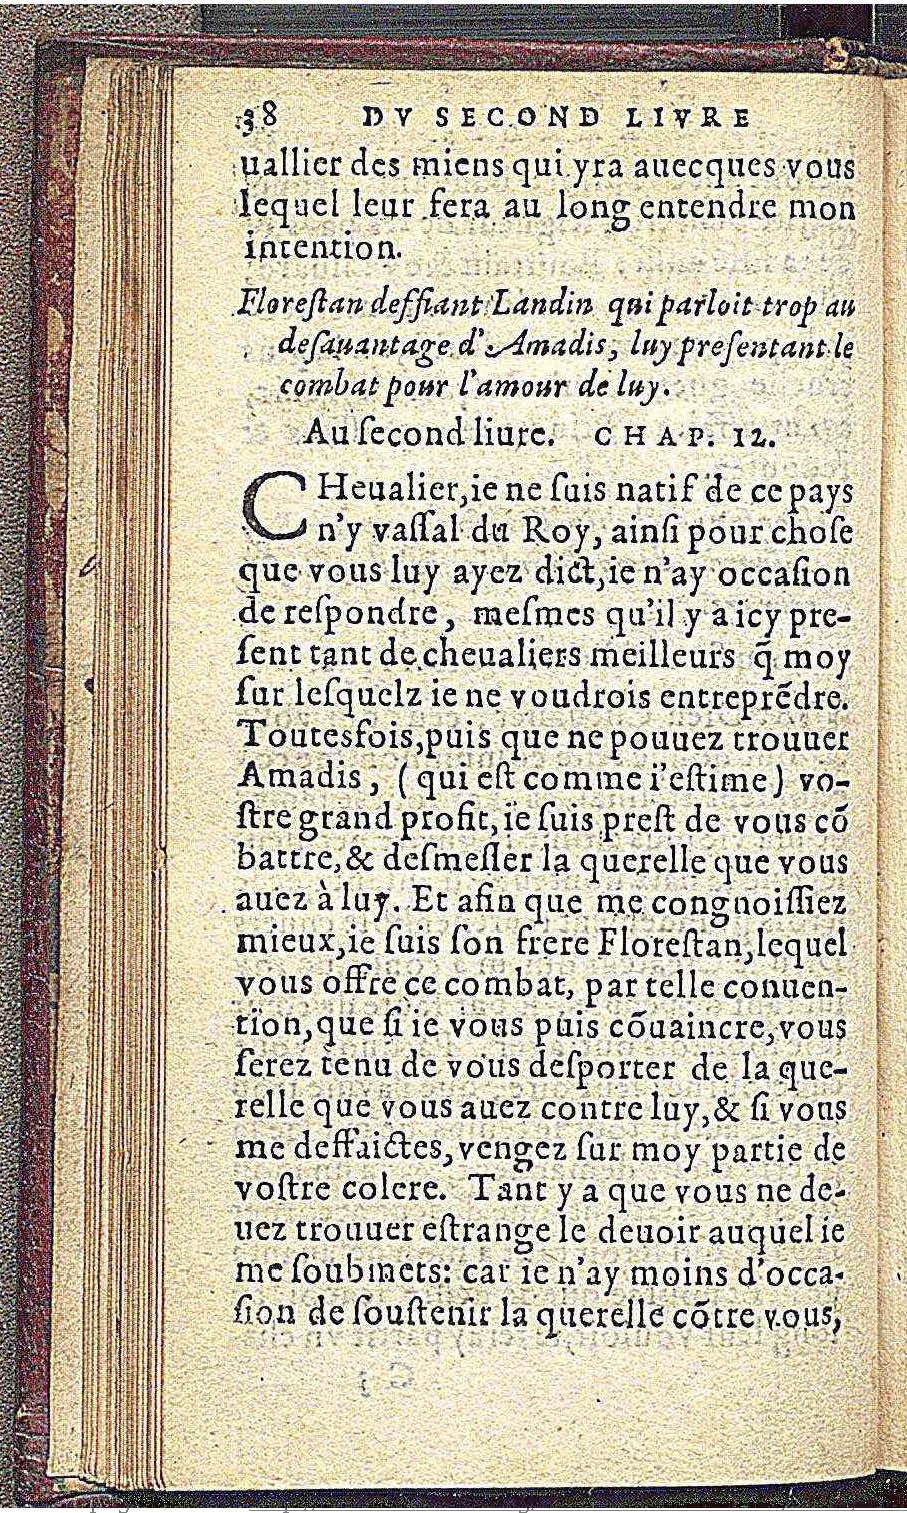 38 DV SECOND LIVRE
uallier des miens qui yra auecques vous
lequel leur fera au long entendre mon
intention.
Floreſtan deffiant Landin qui parloit trop au
deſauantage d'Amadis, luy preſentant le
combat pour l'amour de luy.
Au ſecond liure. CHAP. 12.
CHeualier, ie ne ſuis natif de ce pays
n'y vaſſal du Roy, ainſi pour choſe
que vous luy ayez dict, ie n'ay occaſion
de reſpondre, meſmes qu'il y a icy pre-
ſent tant de cheualiers meilleurs q̃ moy
ſur leſquelz ie ne voudrois entreprẽdre.
Toutesfois, puis que ne pouuez trouuer
Amadis, (qui eſt comme i'eſtime) vo-
ſtre grand profit, ie ſuis preſt de vous cõ
battre, & deſmeſler la querelle que vous
auez à luy. Et afin que me congnoiſſiez
mieux, ie ſuis ſon frere Floreſtan, lequel
vous offre ce combat, par telle conuen-
tion, que ſi ie vous puis cõuaincre, vous
ſerez tenu de vous deſporter de la que-
relle que vous auez contre luy, & ſi vous
me deffaictes, vengez ſur moy partie de
voſtre colere. Tant y a que vous ne de-
uez trouuer eſtrange le deuoir auquel ie
me ſoubmets: car ie n'ay moins d'occa-
ſion de ſouſtenir la querelle cõtre vous,